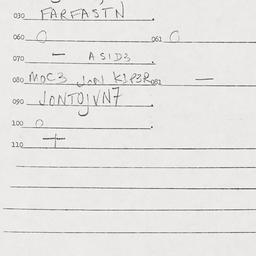 030 FARFASTN
060 O 061 O
070 — ASID3
080 MOC3 JANI KIP3R 081 —
090 JONTOJVN7
100 O
110 +